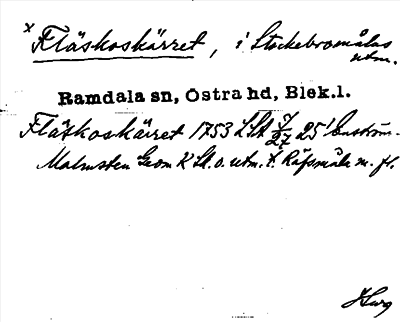 x Fläskoskärret, i Stockebromålas
utm.
Ramdala sn, Östra hd, Blek.l.
Fläskoskärret 1753 LSA 7/27 25 ! Enström-
Malmsten Geom K bl. o. utm. t. Råfsmåla m. fl.